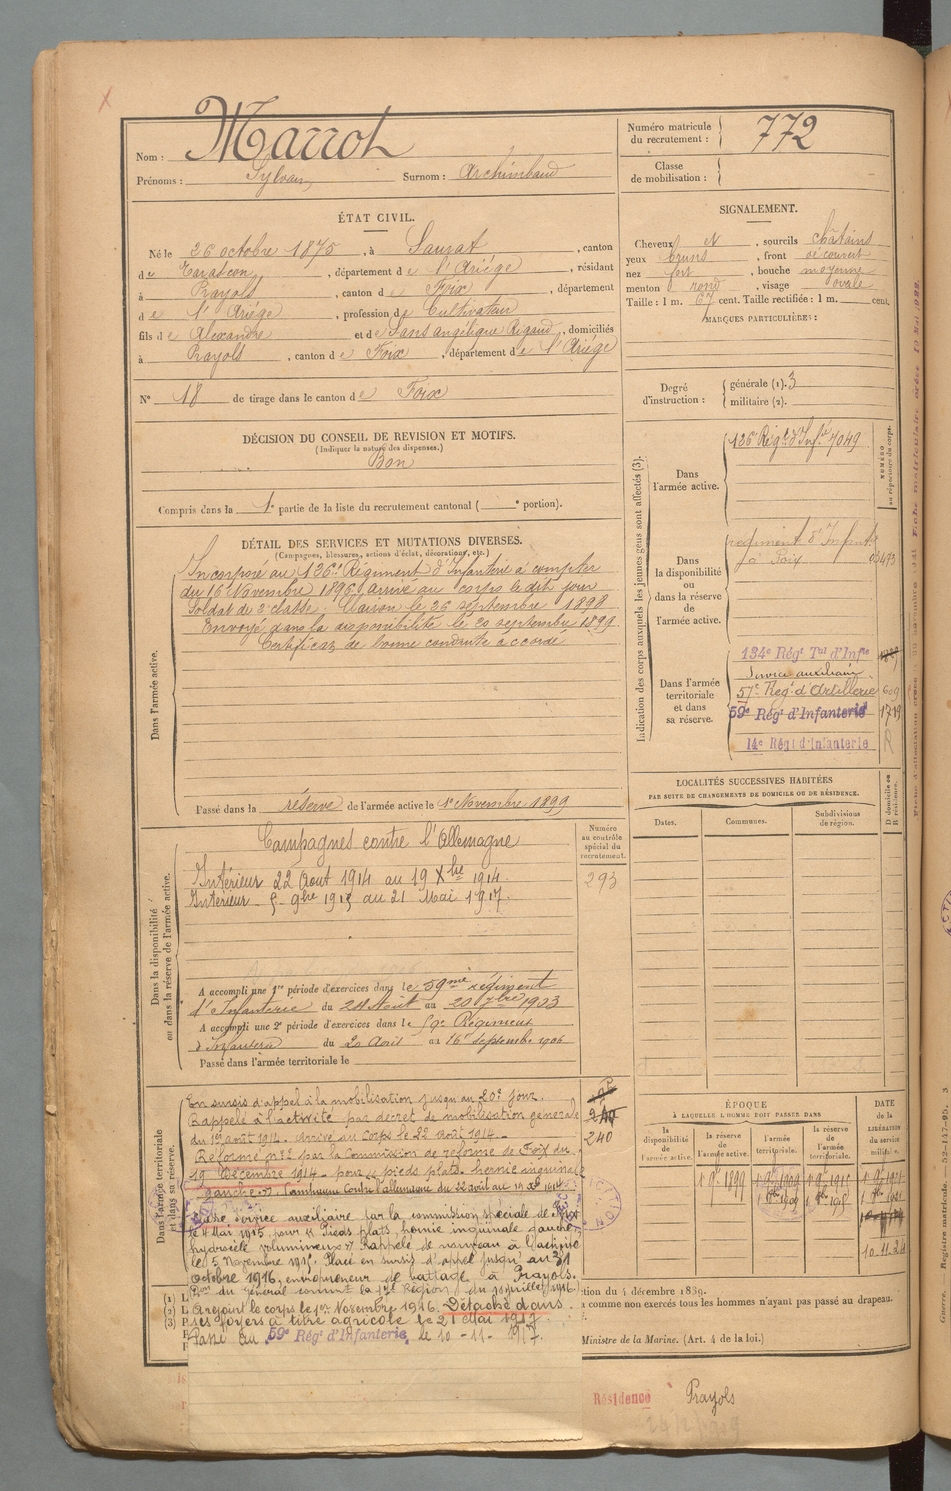 Nom : Marrot
Prénoms : Sylvain Surnom : Archimbaud
Numéro matricule du recrutement : 772
Classe de mobilisation :
ÉTAT CIVIL.
Né le 26 octobre 1875, à Saurat, canton
de Tarascon, département de l'Ariège, résidant
à Prayols, canton de Foix, département
de l'Ariège, profession de Cultivateur
fils de Alexandre et de Sans angélique Rigaud, domiciliés
à Prayols, canton de Foix, département de l'Ariège
N° 18 de tirage dans le canton de Foix
DÉCISION DU CONSEIL DE REVISION ET MOTIFS.
(Indiquer la nature des dispenses.)
Bon
Compris dans la 1e partie de la liste du recrutement cantonal ( e portion).
SIGNALEMENT.
Cheveux et, sourcils châtains
yeux bruns, front découvert
nez fort, bouche moyenne
menton rond, visage ovale
Taille : 1 m. 67 cent. Taille rectifiée : 1 m. cent.
MARQUES PARTICULIÈRES :
Degré d'instruction :
générale (1). 3
militaire (2).
DÉTAIL DES SERVICES ET MUTATIONS DIVERSES.
(Campagnes, blessures, actions d'éclat, décorations, etc.)
Dans l'armée active.
Incorporé au 126e Régiment d'Infanterie à compter
du 16 Novembre 1896, arrivé au corps le dit jour
Soldat de 2e classe. Caserne le 26 septembre 1898
Envoyé dans la disponibilité le 20 septembre 1899
Certificat de bonne conduite accordé
Passé dans la réserve de l'armée active le 1er Novembre 1899
Indication des corps auxquels les jeunes gens sont affectés (3).
NUMÉRO au répertoire du corps.
Dans l'armée active.
126 Régt d'Infie 7049
Dans la disponibilité ou dans la réserve de l'armée active.
régiment d'Infante
à Foix 03473
Dans l'armée territoriale et dans sa réserve.
134e Régt Tal d'Infie
Service auxiliaire
57e Régt d'Artillerie 609
59e Régt d'Infanterie 1719
14e Régt d'Infanterie R
LOCALITÉS SUCCESSIVES HABITÉES
PAR SUITE DE CHANGEMENTS DE DOMICILE OU DE RÉSIDENCE.
Dates. Communes. Subdivisions de région. D domicile ou R résidence.
Dans la disponibilité ou dans la réserve de l'armée active.
Numéro au contrôle spécial du recrutement.
293
Campagnes contre l'Allemagne
Intérieur 22 Aout 1914 au 19 Xbre 1914.
Intérieur 5 9bre 1915 au 21 Mai 1917.
A accompli une 1re période d'exercices dans le 59me régiment
d'Infanterie du 24 Août au 20 7bre 1903
A accompli une 2e période d'exercices dans le 59e Régiment
d'Infanterie du 20 Août au 16 septembre 1906
Passé dans l'armée territoriale le
Dans l'armée territoriale et dans sa réserve.
En sursis d'appel à la mobilisation jusqu'au 20e jour.
240
Rappelé à l'activité par décret de mobilisation générale
du 1er août 1914. Arrivé au Corps le 22 août 1914.
240
Réformé n° 2 par la Commission de réforme de Foix du
19 Décembre 1914 - pour « pieds plats - hernie inguinale
gauche ». Campagne Contre l'allemagne du 22 août au 19 Xbre 1914
service auxiliaire par la commission spéciale de Foix
le 4 Mai 1915 pour « Pieds plats hernie inguinale gauche
hydrocèle volumineux » Rappelé de nouveau à l'activité
le 5 Novembre 1915. Placé en sursis d'appel jusqu'au 31
octobre 1916, entrepreneur de battage à Prayols.
du Général commt la 17e Région du juillet 1916.
A rejoint le corps le 1er Novembre 1916. Détaché dans
ses foyers à titre agricole le 21 Mai 1917
Passé au 59e Régt d'Infanterie, le 10-11-1917.
ÉPOQUE
À LAQUELLE L'HOMME DOIT PASSER DANS
la disponibilité de l'armée active. la réserve de l'armée active. l'armée territoriale. la réserve de l'armée territoriale.
DATE de la LIBÉRATION du service militaire.
1 9bre 1899 1 9bre 1909 1 9bre 1915 1 9bre 1921
10.11.21
tion du 4 décembre 1889.
comme non exercés tous les hommes n'ayant pas passé au drapeau.
Ministre de la Marine. (Art. 4 de la loi.)
Résidence à Prayols
24/12/1909
Guerre. Registre matricule. 52-147-95. 3